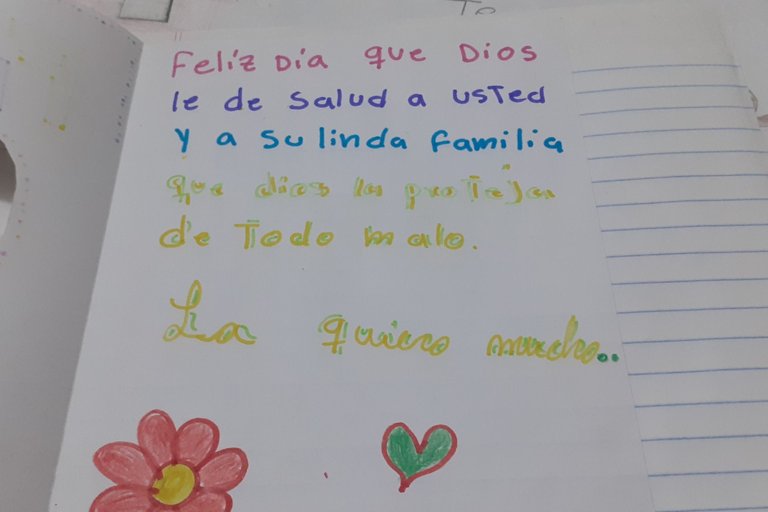 To
Feliz Día que Dios
le de salud a usted
y a su linda familia
que dios la proteja
de Todo malo.
La quiero mucho..